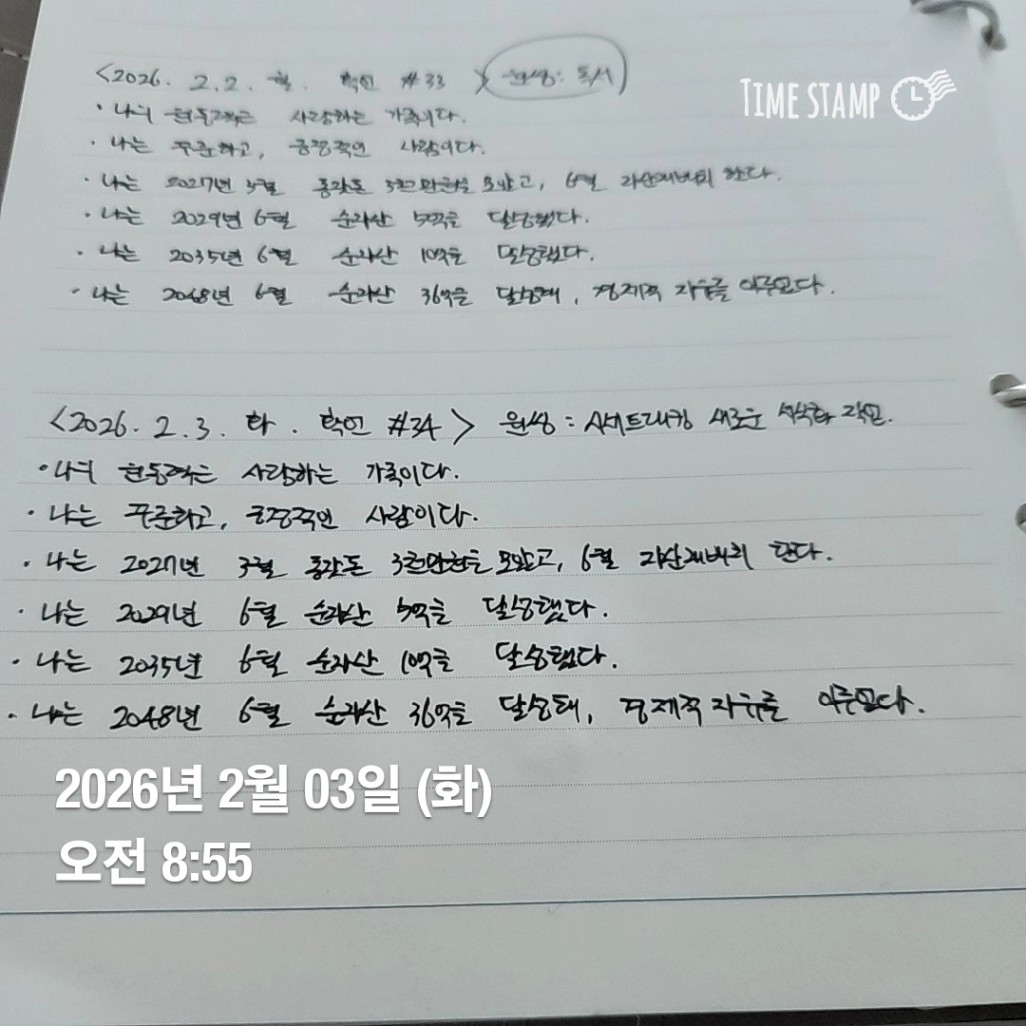 <2026. 2. 2. 확언 #33> 원씽: 독서
TIME STAMP
· 나의 원동력은 사랑하는 가족이다.
· 나는 꾸준하고, 긍정적인 사람이다.
· 나는 2027년 3월 종잣돈 3천만원을 모았고, 6월 자산재배치 한다.
· 나는 2029년 6월 순자산 5억을 달성했다.
· 나는 2035년 6월 순자산 10억을 달성했다.
· 나는 2048년 6월 순자산 36억을 달성해, 경제적 자유를 이루었다.
<2026. 2. 3. 화. 확언 #34> 원씽: 새로운
· 나의 원동력은 사랑하는 가족이다.
· 나는 꾸준하고, 긍정적인 사람이다.
· 나는 2027년 3월 종잣돈 3천만원을 모았고, 6월 자산재배치 한다.
· 나는 2029년 6월 순자산 5억을 달성했다.
· 나는 2035년 6월 순자산 10억을 달성했다.
· 나는 2048년 6월 순자산 36억을 달성해, 경제적 자유를 이루었다.
2026년 2월 03일 (화)
오전 8:55